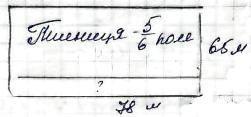 Пшениця - 5/6 поле
65 м
?
78 м